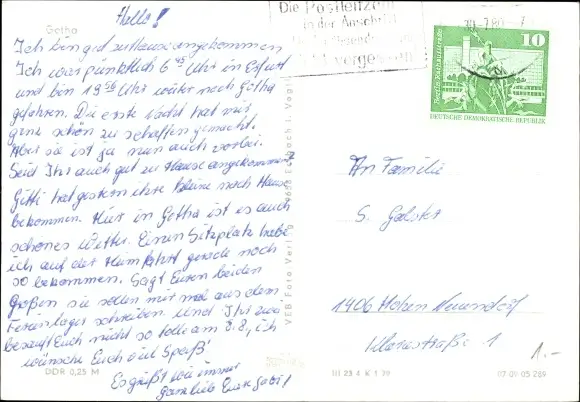 Hallo!
Gotha
Ich bin gut zuhause angekommen
Ich war pünktlich 6 45 Uhr in Erfurt
und bin Uhr weiter nach Gotha
gefahren. Die erste Nacht hat mir
ganz schön zu schaffen gemacht.
Aber sie ist ja nun auch vorbei.
Seid Ihr auch gut zu Hause angekommen
Gitti hat gestern ihre nach Haus
bekommen. Hier in Gotha ist es auch
schönes Wetter. Einen Sitzplatz habe
ich auf der Heimfahrt gerade noch
so bekommen. Sagt Euren beiden
Großen sie sollen mir mal aus dem
Ferienlager schreiben. Und Ihr zwei
besauft Euch nicht so tolle am 2.8., ich
wünsche Euch viel Spaß!
Es grüßt wie immer
ganz lieb Eure Gabi!
DDR 0,25 M
VEB Foto-Verlag
Die Postleitzahl
in der Anschrift
nicht vergessen
30.-7.80.-7
10
DEUTSCHE DEMOKRATISCHE REPUBLIK
An Familie
S. Galster
1406 Hohen Neuendorf
Klarastraße 1
1.-
III 23 4 K 1 79
07 01 05 269